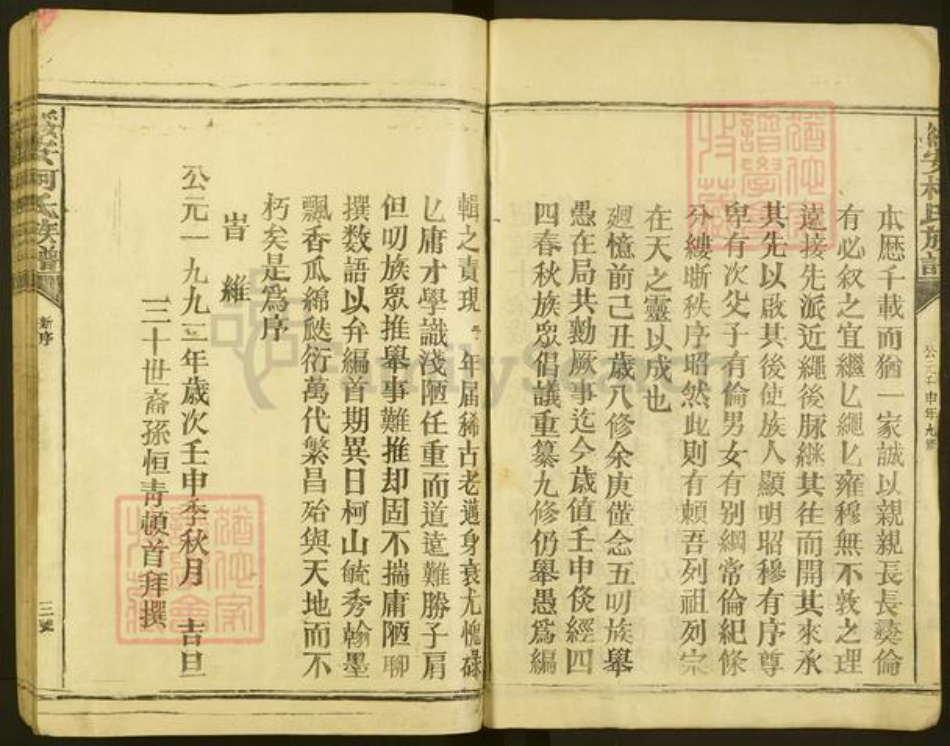 本歷千載而猶一家誠以親親長長彝倫
有必叙之宜繼匕繩匕雍穆無不敦之理
遠接先派近繩後脉継其往而開其來承
其先以啟其後使族人顯明昭穆有序尊
卑有次父子有倫男女有别綱常倫紀條
分縷晰秩序昭然此則有頼吾列祖列宗
在天之靈以成也
廻憶前己丑歲八修余庚僅念五叨族舉
愚在局共勷厥事迄今歲值壬申倐經四
四春秋族眾倡議重纂九修仍舉愚爲編
輯之責現年届稀古老邁身衰尤愧碌
匕庸才學識淺陋任重而道遠難勝子肩
但叨族眾推舉事難推却固不揣庸陋聊
撰数語以弁編首期異日柯山毓秀翰墨
飄香瓜綿瓞衍萬代繁昌殆與天地而不
朽矣是為序
旹維
公元一九九二年歲次壬申季秋月 吉旦
三十世裔孫恒靑頓首拜撰
新序
三號
柯氏族譜
FamilySearch